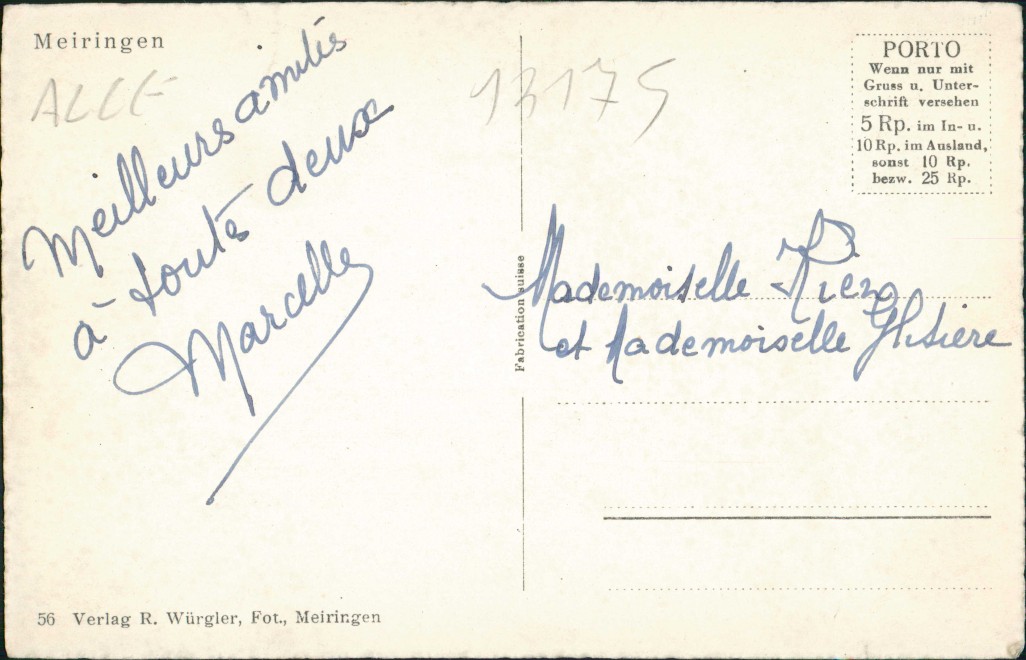 Meiringen
ALLE
Meilleurs amitiés
à toute deux
Marcelle
13175
PORTO
Wenn nur mit
Gruss u. Unter-
schrift versehen
5 Rp. im In- u.
10 Rp. im Ausland,
sonst 10 Rp.
bezw. 25 Rp.
Fabrication suisse
Mademoiselle
et Mademoiselle
56 Verlag R. Würgler, Fot., Meiringen